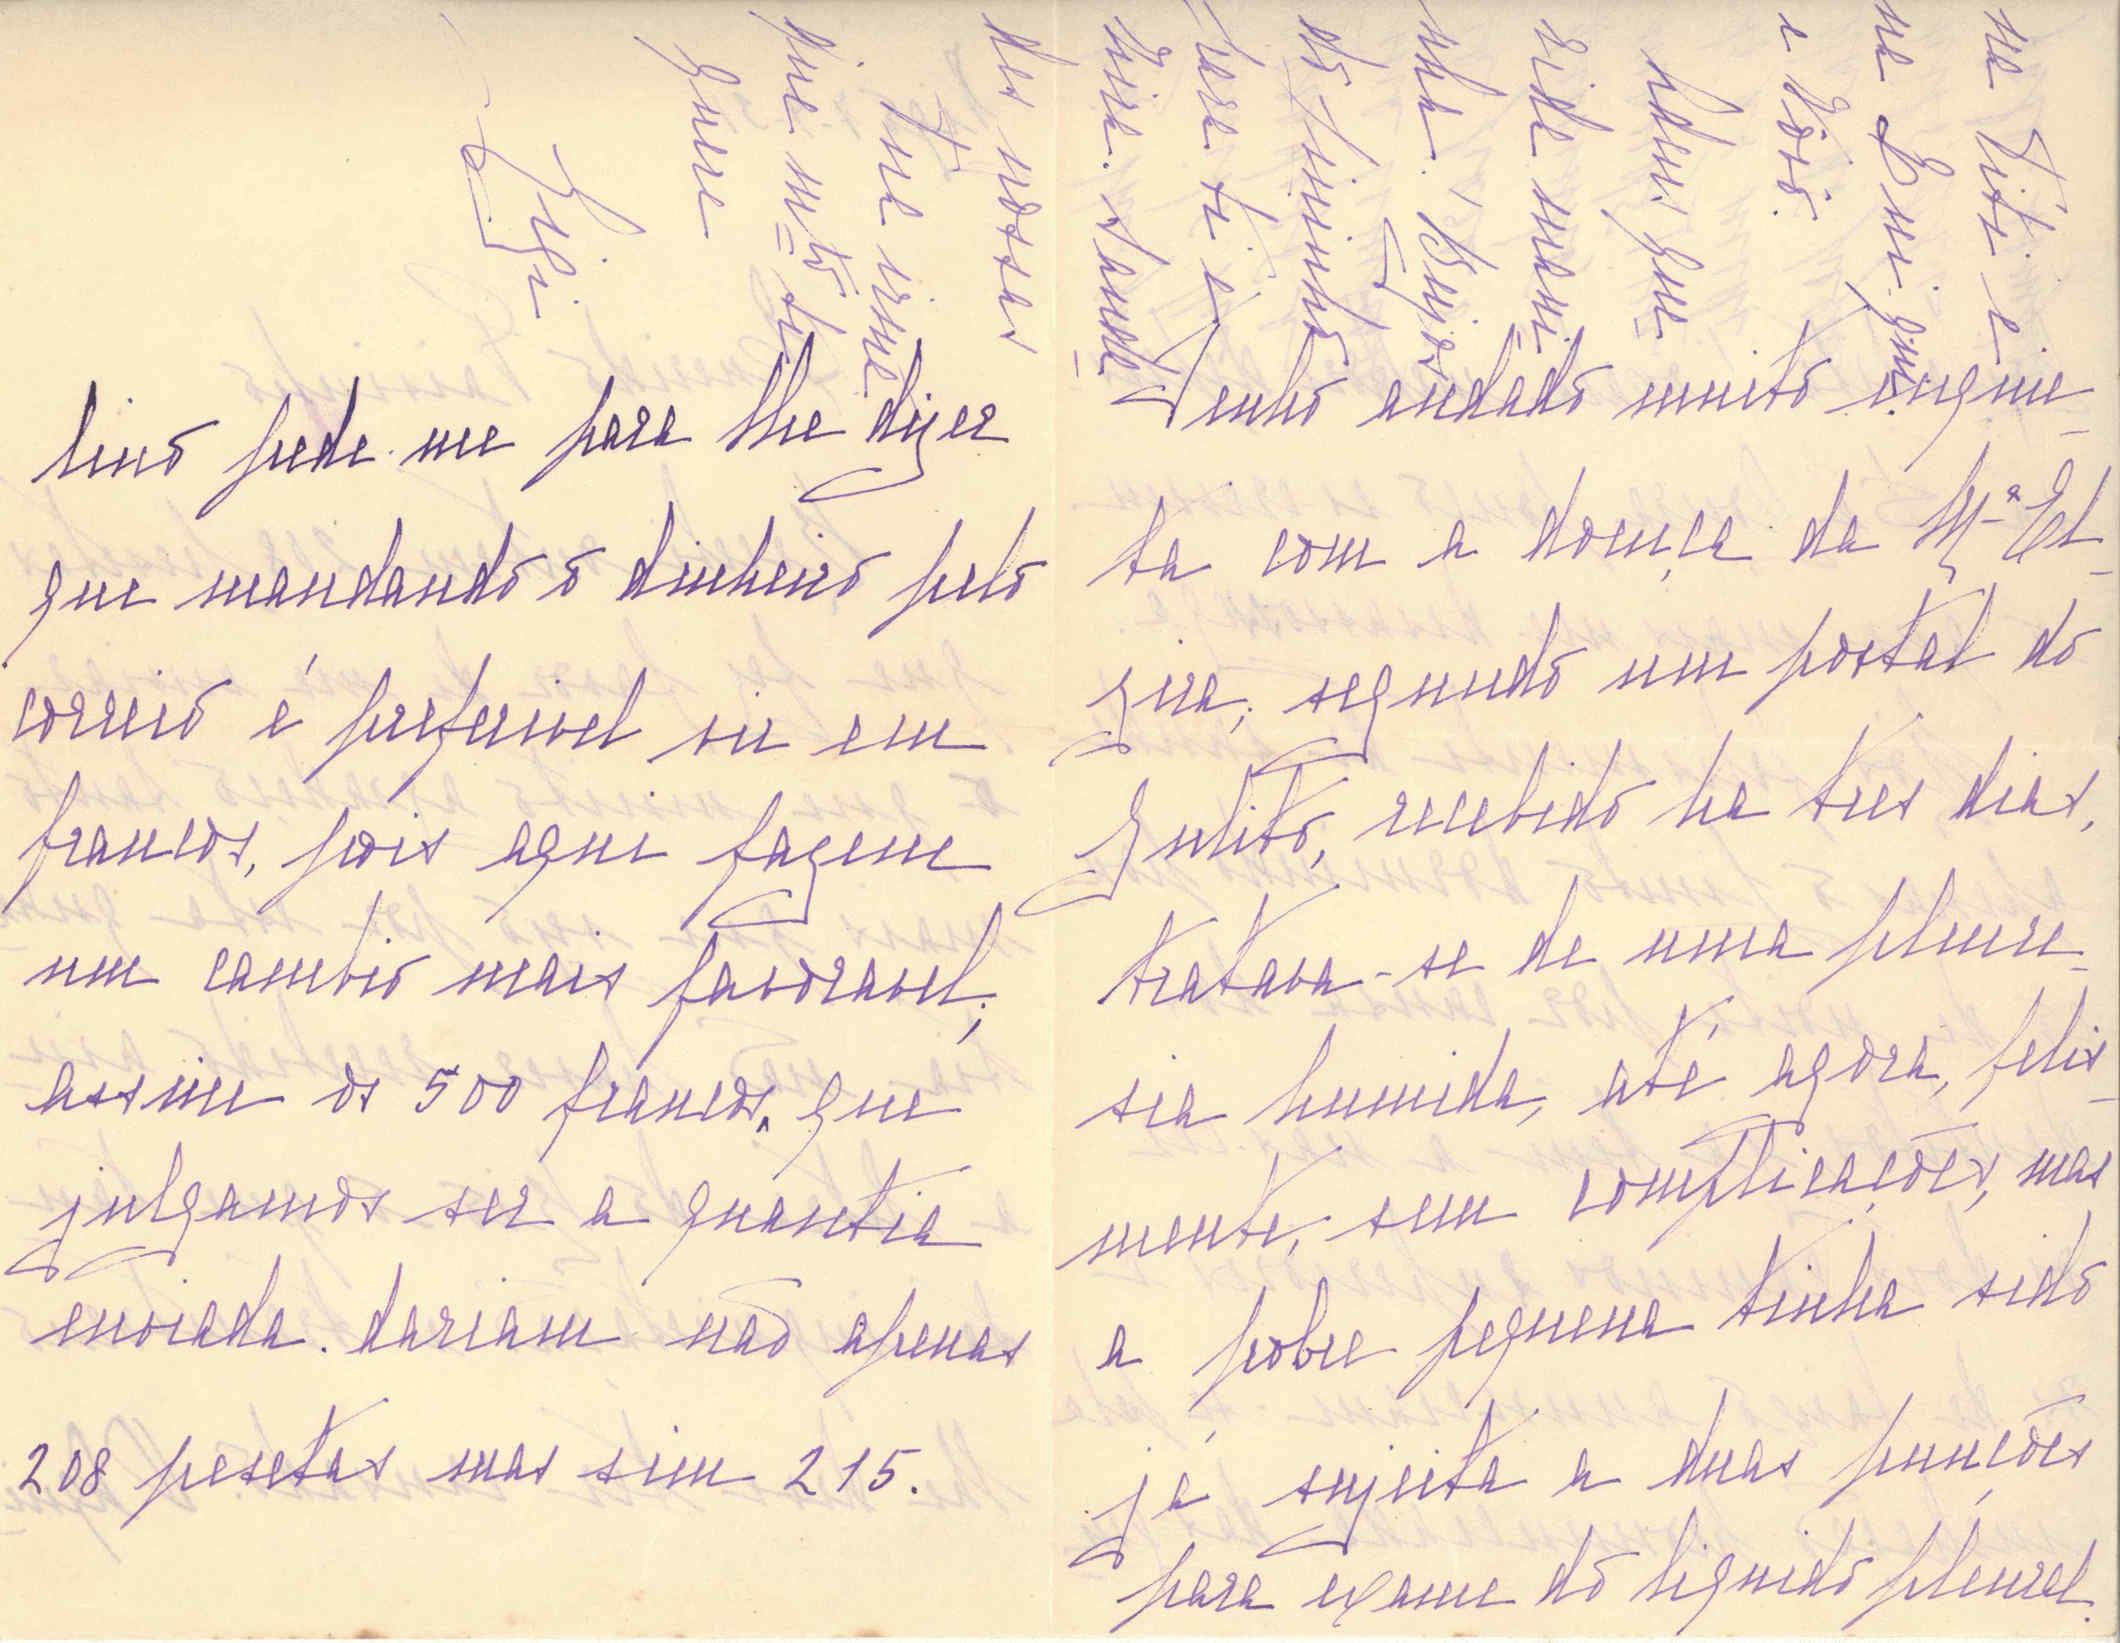 lino pede-me para lhe dizer
que mandando o dinheiro pelo
correio é preferivel vir em
francos, pois aqui fazem
um cambio mais favoravel;
assim os 500 francos, que
julgamos ser a quantia
enviada. dariam não apenas
208 pesetas mas sim 215.
Tenho andado muito inquie-
ta com a doença da Mª El-
zira; segundo um postal do
Julito, recebido ha tres dias,
tratava-se de uma pleure-
sia humida, até agora, felis-
mente, sem complicações, mas
a pobre pequena tinha sido
já sujeita a duas punções
para exame do liquido pleural.
na Titi e
na
e Vóvó.
Adeus que-
rida mani-
nha. Beijos
do Tininho
para ti e
Sauda-
des nossas
Tua irmã
que mto te
quer